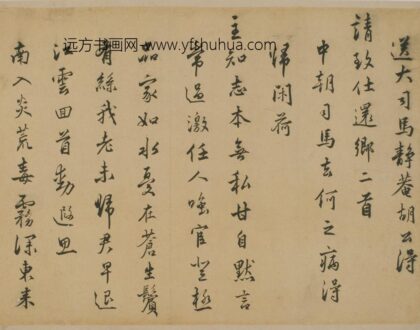 远方书画网:www.yfshuhua.com
送大司马静庵胡公得
請致仕還鄉二首
中朝司马去何之病得
歸闲荷
主知志本無私甘自默言
常過激任人嗤官登極
品家如水憂在蒼生鬢
有絲我老未歸君早退
江雲回首動遐思
南入炎荒毒霧深東来